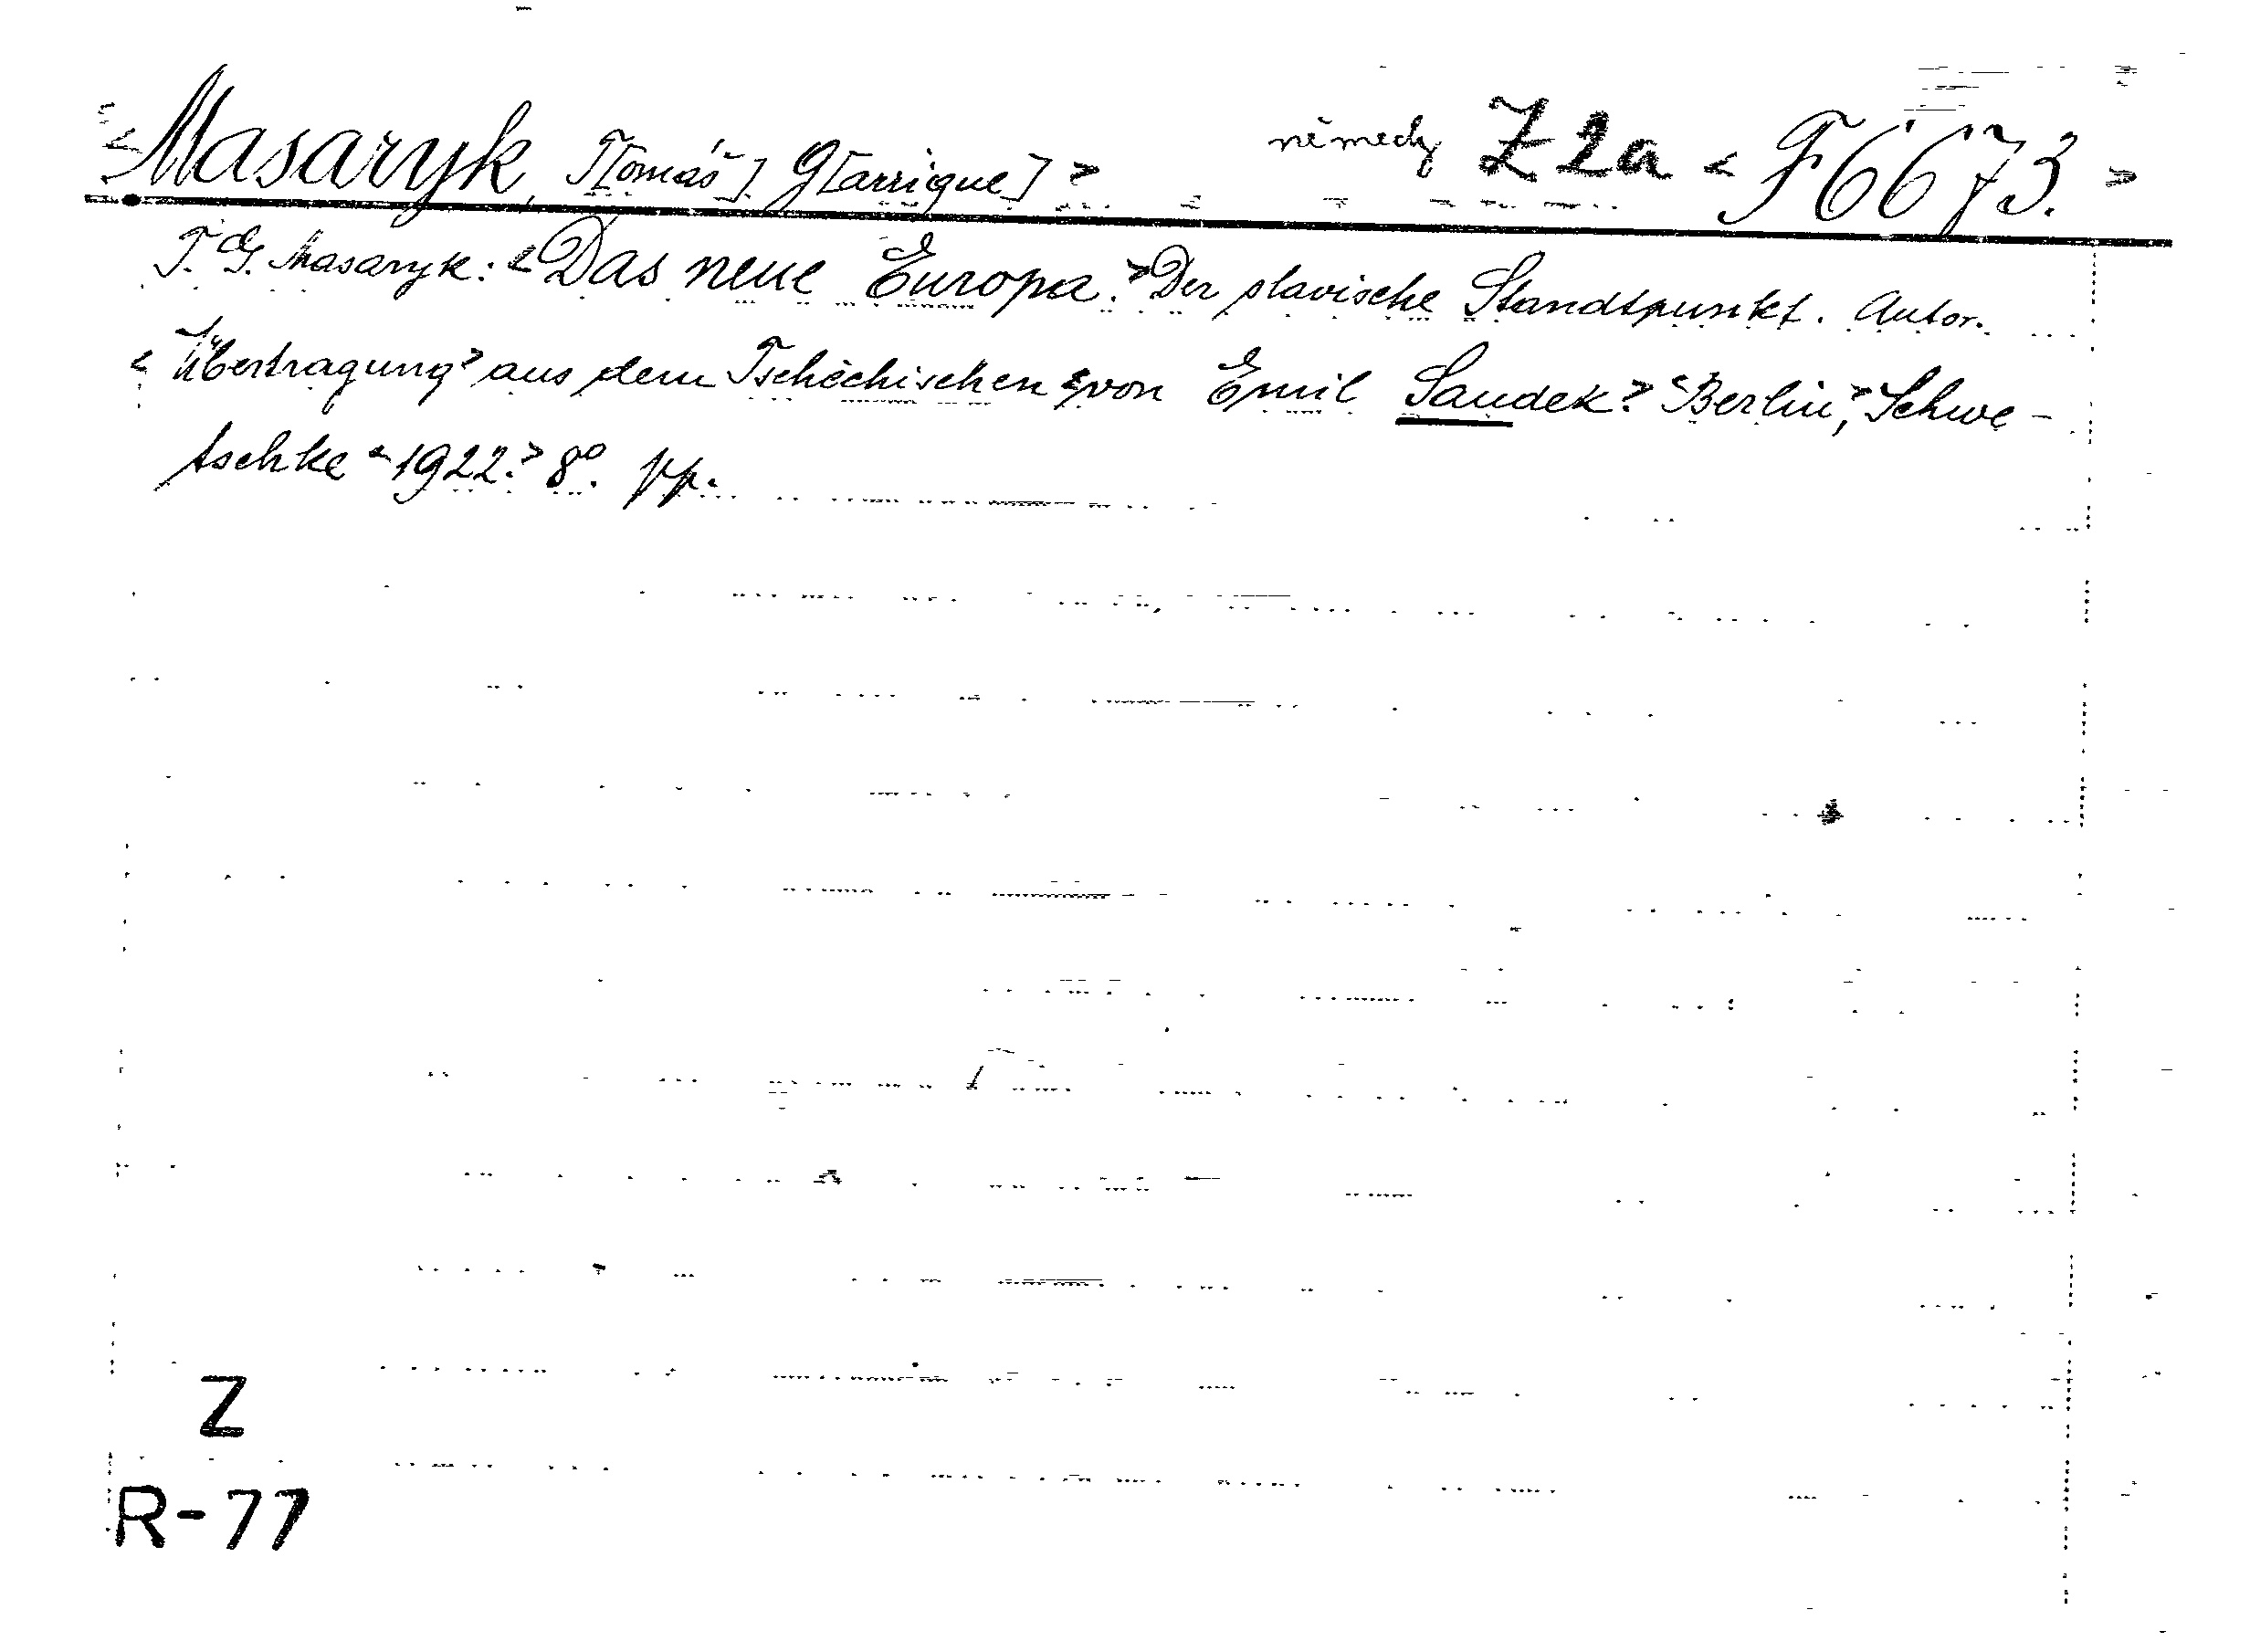 <Masaryk, T[omáš] G[arrigue]> německy Z 2a <F 6673.>
T. G. Masaryk: <Das neue Europa.> Der slavische Standtpunkt. Autor.
<Übertragung> aus dem Tschechischen <von Emil Saudek.> <Berlin,> Schwe-
tschke <1922.> 8°. pp.
Z
R-77